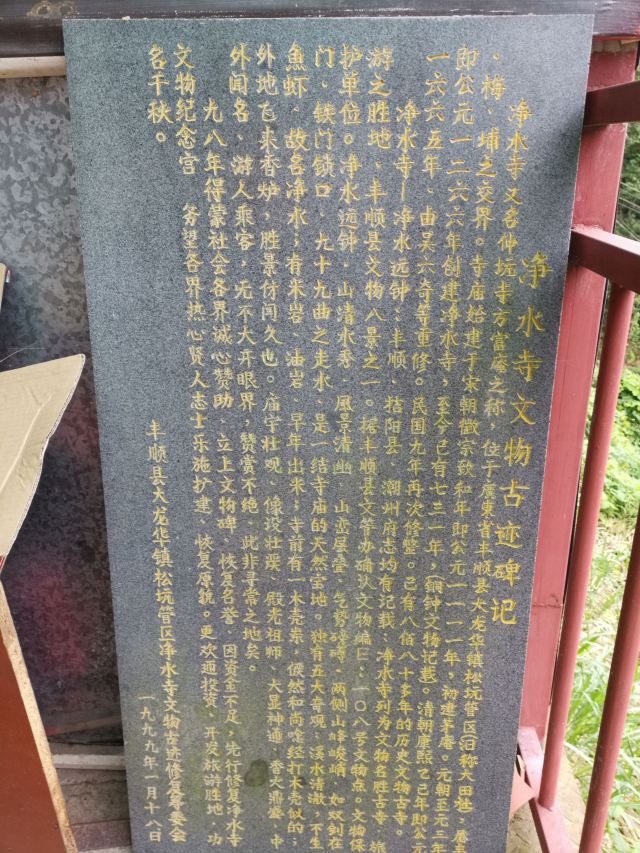 净水寺文物古迹碑记
净水寺又名仲坑寺方富庵之称，位于廣東省丰顺县大龙华镇松坑管区（旧称大田社）、
梅、埔之交界。寺庙始建于宋朝徽宗致和年即公元一一一一年，初建茅庵。元朝至元三年
即公元一二六六年创建净水寺，至今已有七三一年，（铜钟文物记载。清朝康熙乙已年即公元
一六六五年、由吴六奇等重修。民国九年再次修整。已有八佰八十多年的历史文物古寺。
净水寺—净水远钟：丰顺、揭阳县、潮州府志均有记载：净水寺列为文物名胜古寺、旅
游之胜地、丰顺县文物八景之一。据丰顺县文管办确认文物编曰：一〇八号文物点。文物保
护单位。净水远钟，山清水秀、風景清幽、山峦层叠、气势磅礴、两侧山峰峻峭，如双剑在
门、铁门锁口，九十九曲之走水、是一结寺庙的天然宝地。独有五大奇观：溪水清澈，不生
魚虾。故名净水；有米岩、油岩、早年出米；寺前有一木壳条，俨然和尚唸经打木壳似的；
外地飞来香炉，胜景仿闻久也。庙宇壮观、像设壮瑛、殿老祖师、大显神通，香火鼎盛，中
外闻名、游人乘客，无不大开眼界，赞赏不绝、此非寻常之地矣。
九八年得蒙社会各界诚心赞助、立上文物碑、恢复名誉。因资金不足，先行修复净水寺
文物纪念宫 筹望各界热心贤人志士乐施扩建、恢复原貌。更欢迎投资、开发旅游胜地、功
名千秋。
丰顺县大龙华镇松坑管区净水寺文物古迹修复筹委会
一九九九年一月十八日